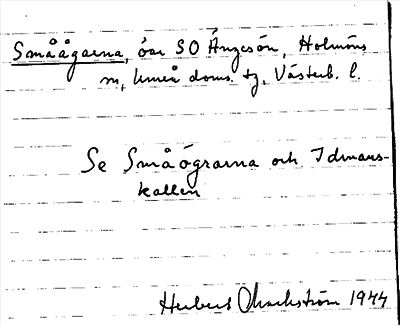 Småågarna, öar SO Ängesön, Holmöns
m, Umeå doms. tg. Västerb. l.
Se Småögrarna och Idmans-
kallen
Herbert Markström 1944